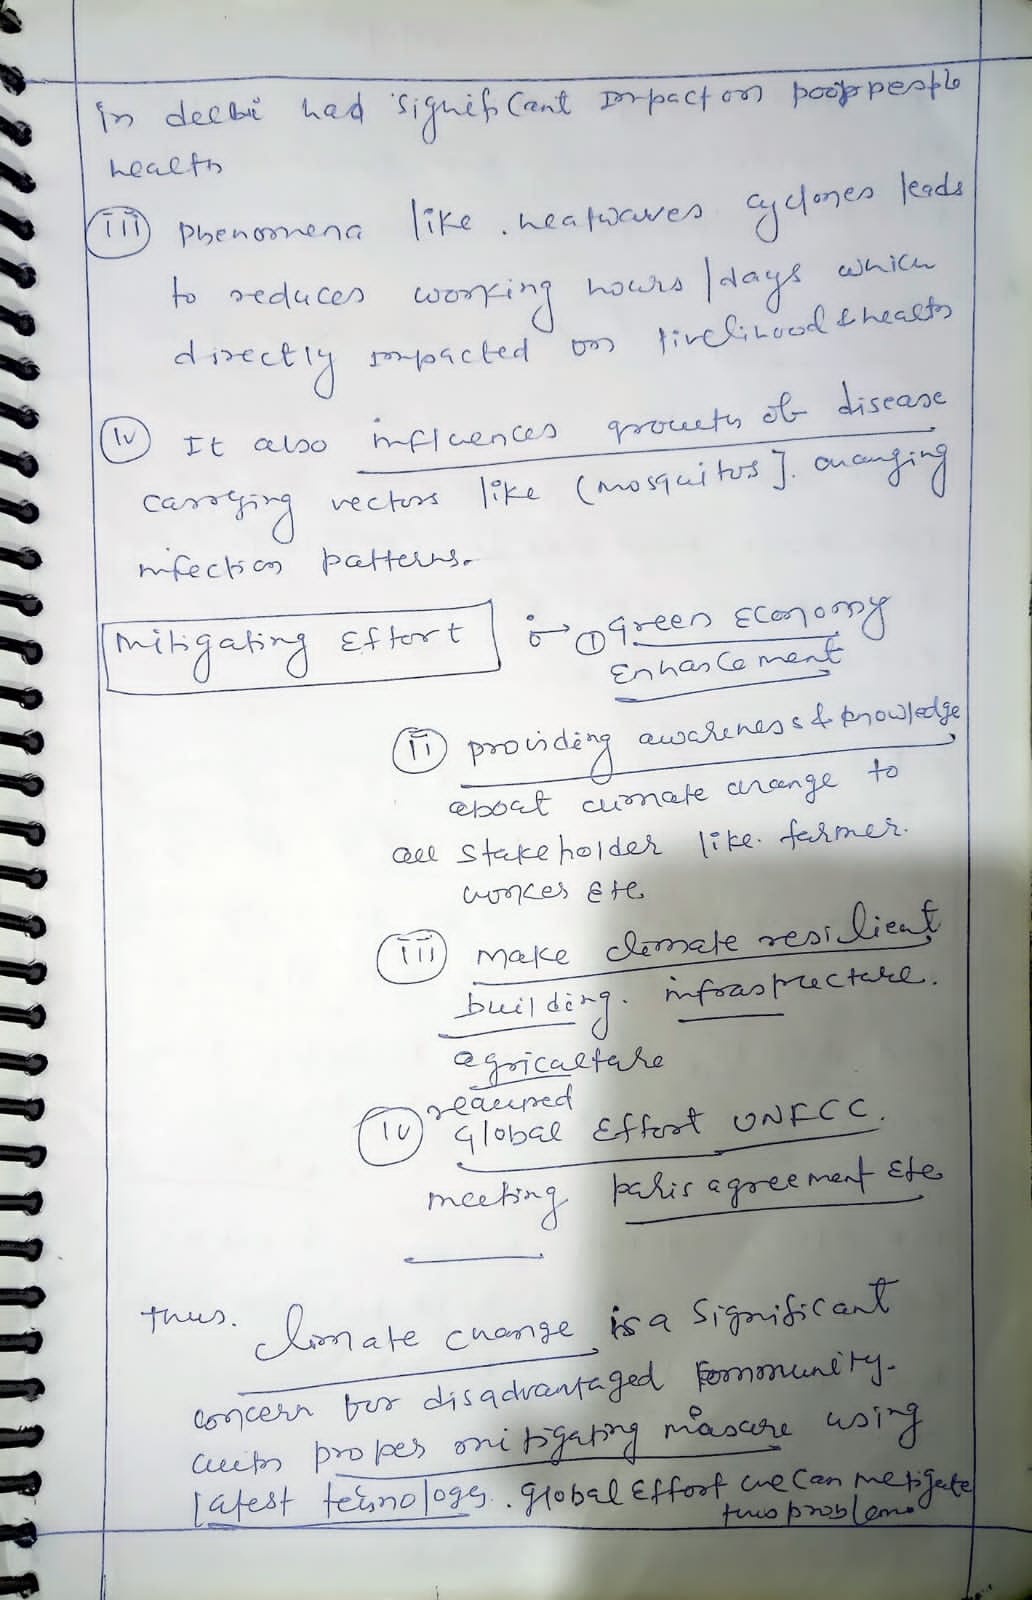 in delhi had significant impact on poor people
health
(iii) Phenomena like. heatwaves cyclones leads
to reduces working hours/days which
directly impacted on livelihood & health
(iv) It also influences growth of disease
carrying vectors like (mosquitos]. changing
infection patterns.
Mitigating Effort :→ (1) Green Economy
Enhancement
(ii) providing awareness & knowledge
about climate change to
all stakeholder like. farmer.
workes etc
(iii) make climate resilient
building. infrastructure.
agriculture
required
(iv) Global Effort UNFCC.
meeting paris agreement etc
Thus. Climate change is a significant
concern for disadvantaged community.
with proper mitigating masure using
latest technology. global Effort we can mitigate
this problem.